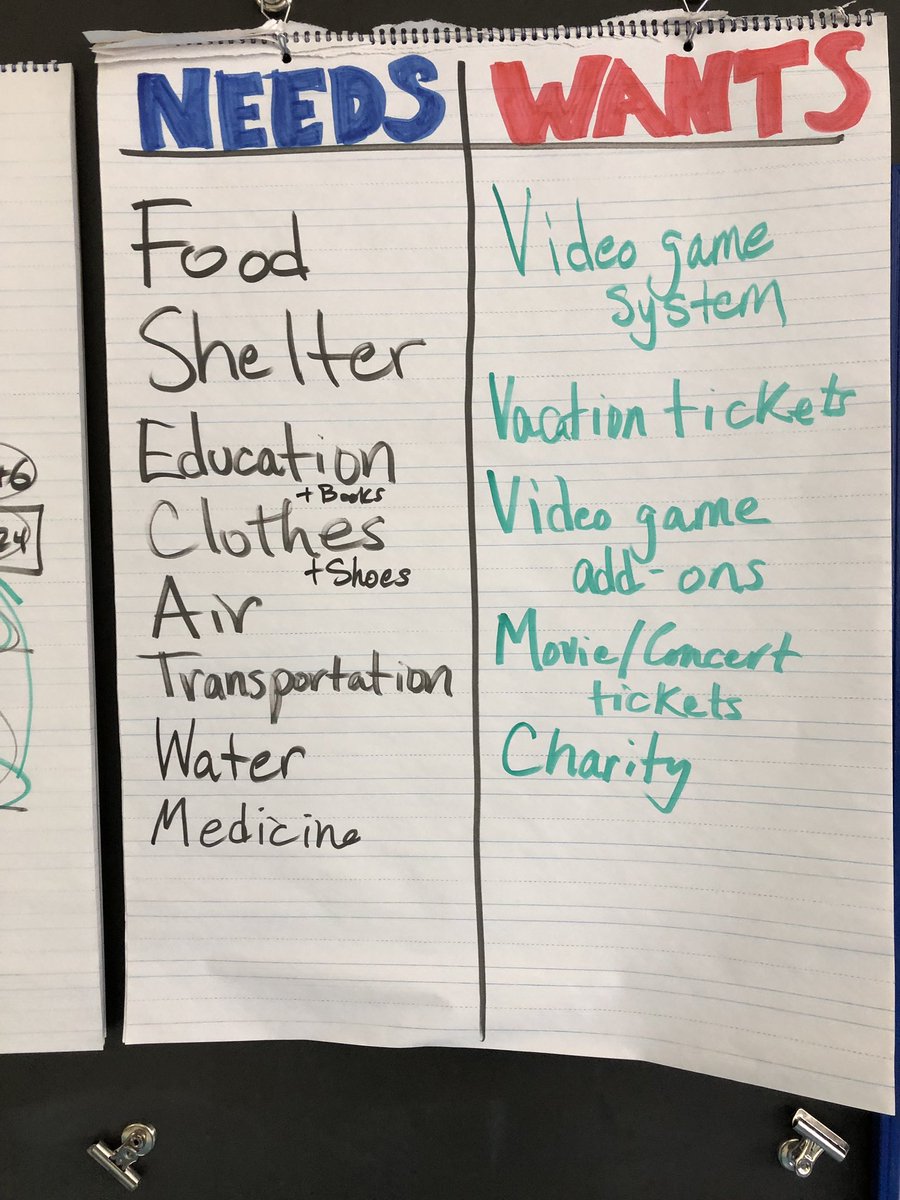 NEEDS
Food
Shelter
Education
+ Books
Clothes
+ Shoes
Air
Transportation
Water
Medicine
WANTS
Video game
system
Vacation tickets
Video game
add-ons
Movie/Concert
tickets
Charity
+6
24